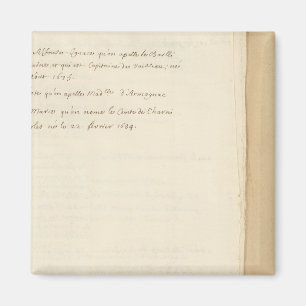 Alfonse-Ignace qu'on apelle le Bailli
et qui est Capitaine de Vaisseau; né
1675.
qu'on apelle Mad.lle d'Armagnac
Marie qu'on nomme le Comte de Charni
né le 22 février 1684.